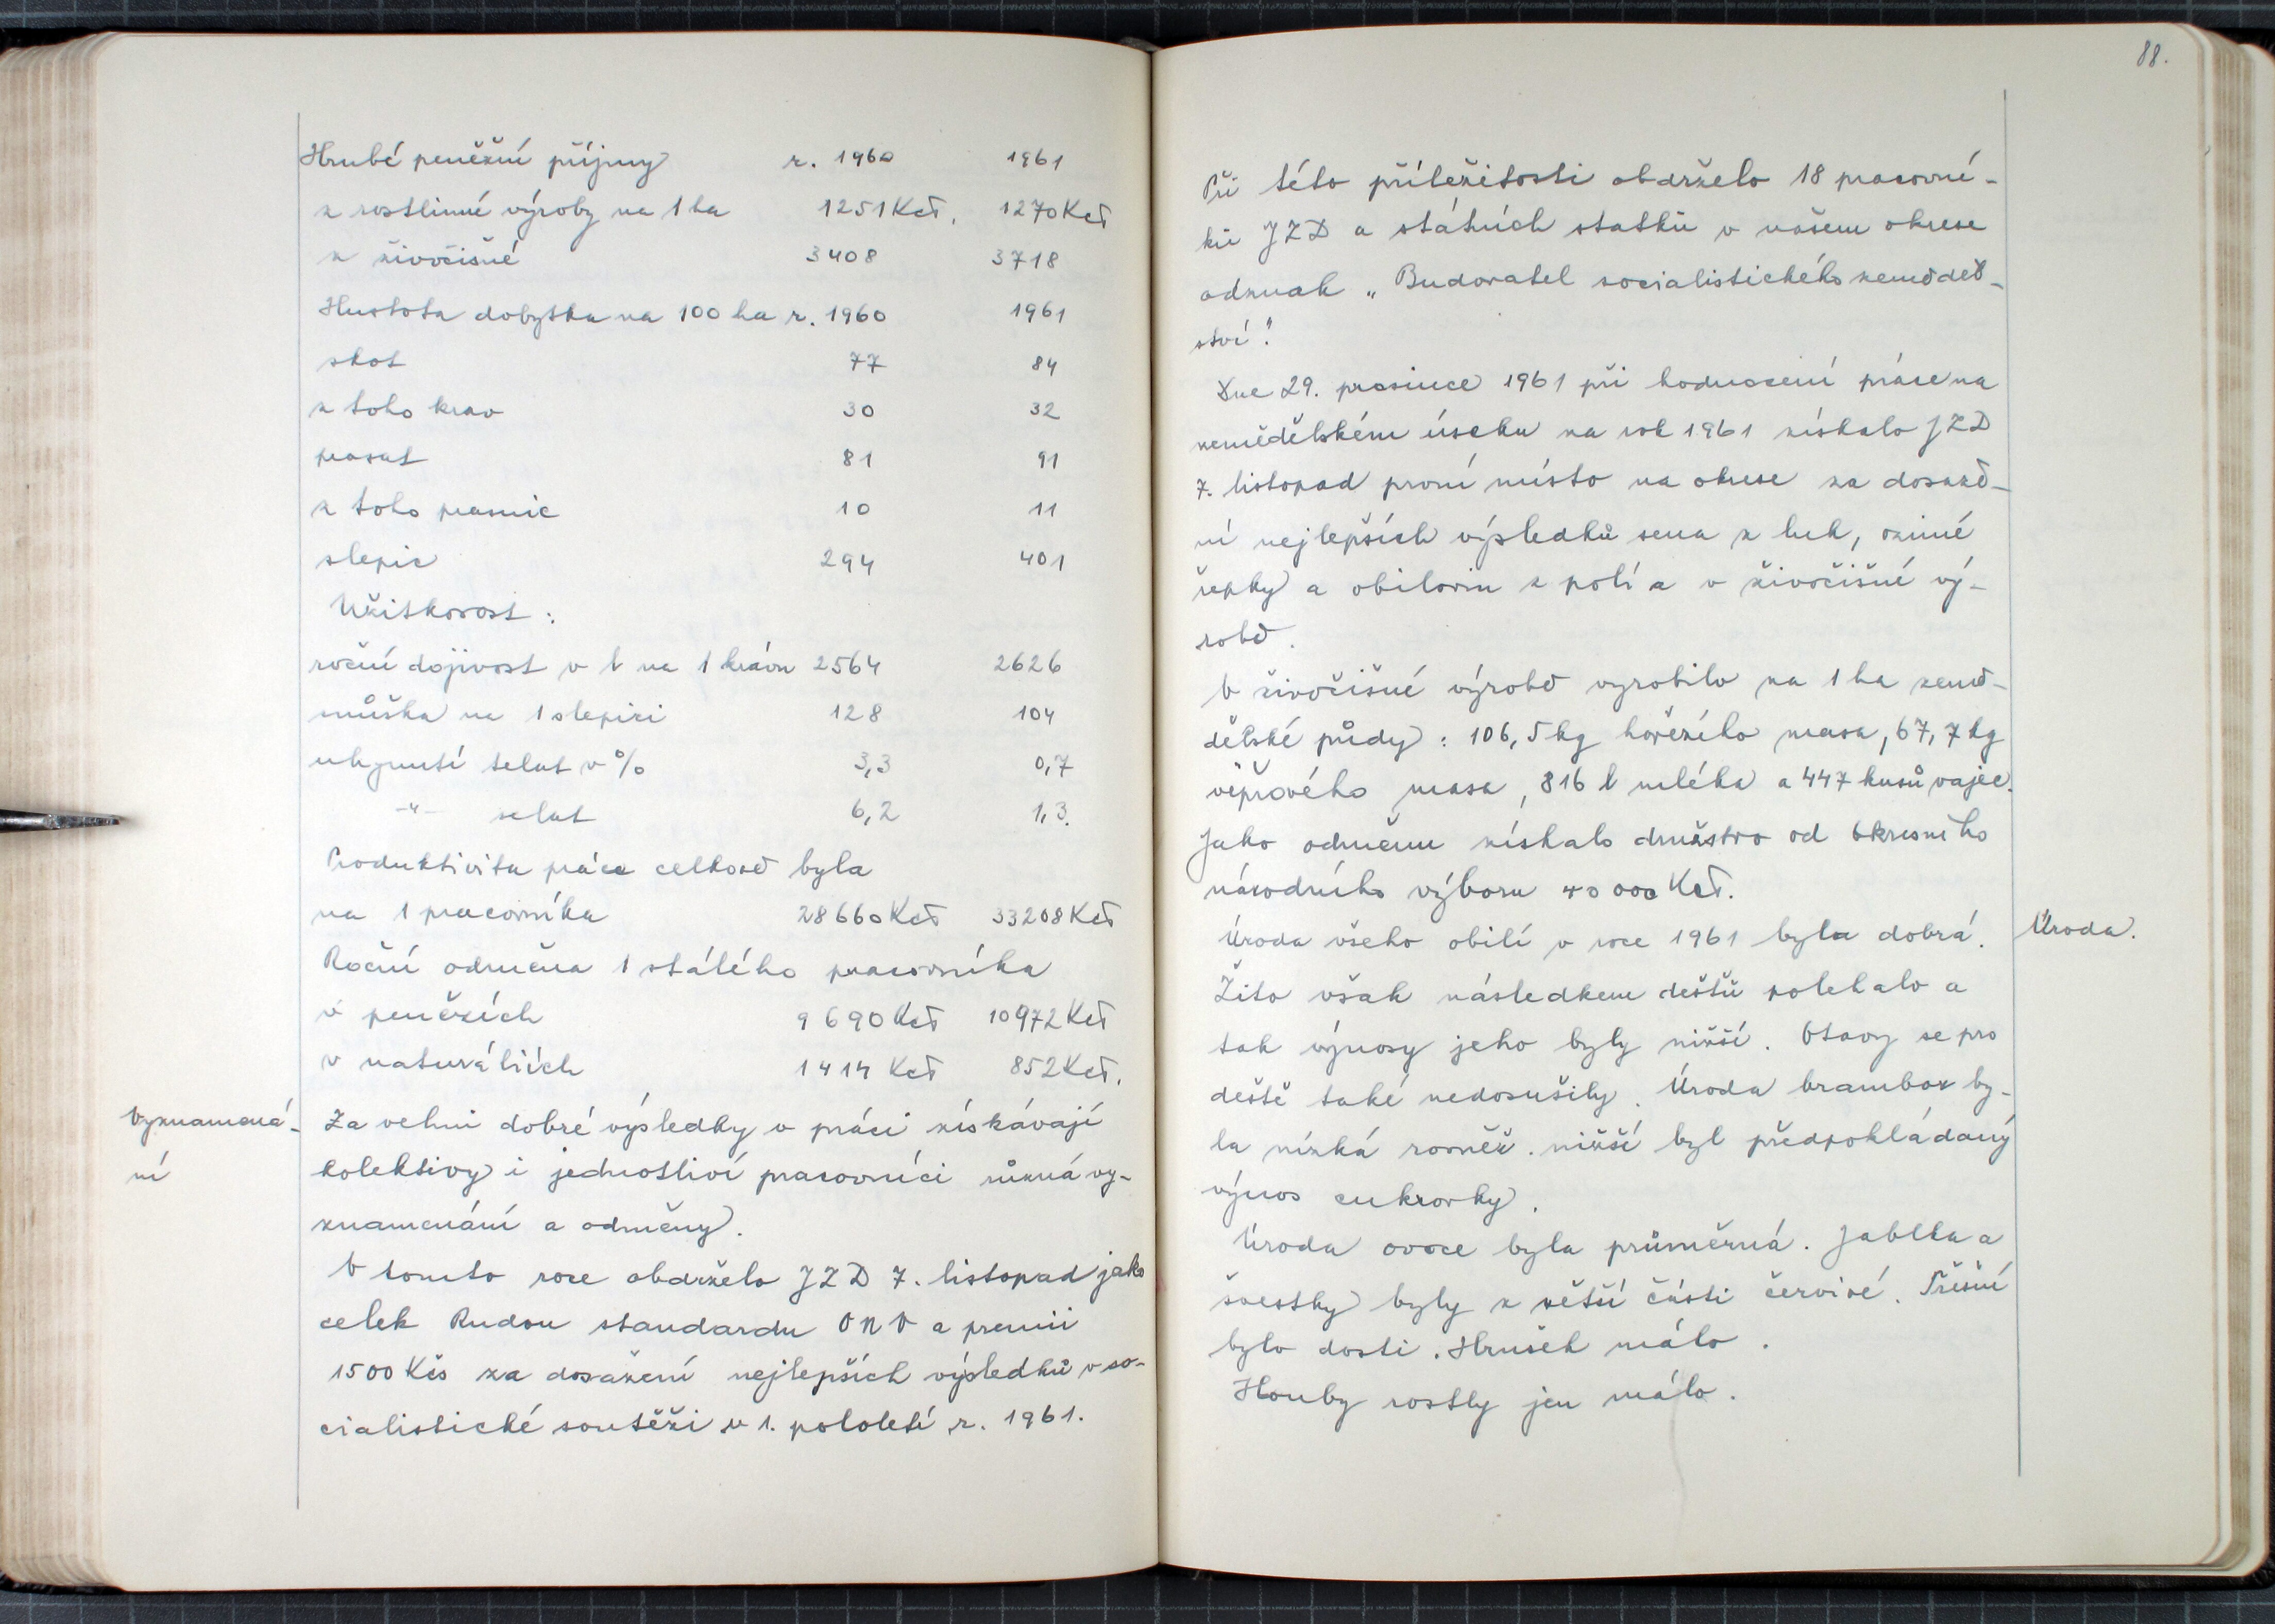 Hrubé peněžní příjmy r. 1960 1961
z rostlinné výroby na 1 ha 1251 Kčs. 1270 Kčs
z živočišné 3408 3718
Hustota dobytka na 100 ha r. 1960 1961
skot 77 84
z toho krav 30 32
prasat 81 91
z toho prasnic 10 11
slepic 294 401
Užitkovost:
roční dojivost v l na 1 krávu 2564 2626
snůška na 1 slepici 128 104
uhynutí telat v % 3,3 0,7
-"- selat 6,2 1,3.
Produktivita práce celkově byla
na 1 pracovníka 28660 Kčs 33208 Kčs
Roční odměna 1 stálého pracovníka
v penězích 9690 Kčs 10972 Kčs
v naturáliích 1414 Kčs 852 Kčs.
Vyznamená-
ní
Za velmi dobré výsledky v práci získávají
kolektivy i jednotliví pracovníci různá vy-
znamenání a odměny.
V tomto roce obdrželo JZD 7. listopad jako
celek Rudou standardu ONV a premii
1500 Kčs za dosažení nejlepších výsledků v so-
cialistické soutěži v 1. pololetí r. 1961.
88.
Při této příležitosti obdrželo 18 pracovní-
ků JZD a státních statků v našem okrese
odznak „Budovatel socialistického zeměděl-
ství".
Dne 29. prosince 1961 při hodnocení práce na
zemědělském úseku za rok 1961 získalo JZD
7. listopad první místo na okrese za dosaže-
ní nejlepších výsledků sena z luk, ozimé
řepky a obilovin z polí a v živočišné vý-
robě.
V živočišné výrobě vyrobilo na 1 ha země-
dělské půdy: 106,5 kg hovězího masa, 67,7 kg
vepřového masa, 816 l mléka a 447 kusů vajec.
Jako odměnu získalo družstvo od Okresního
národního výboru 40 000 Kčs.
Úroda.
Úroda všeho obilí v roce 1961 byla dobrá.
Žito však následkem dešťů polehalo a
tak výnosy jeho byly nižší. Otavy se pro
deště také nedosušily. Úroda brambor by-
la nízká rovněž. nižší byl předpokládaný
výnos cukrovky.
Úroda ovoce byla průměrná. Jablka a
švestky byly z větší části červivé. Třešní
bylo dosti. Hrušek málo.
Houby rostly jen málo.